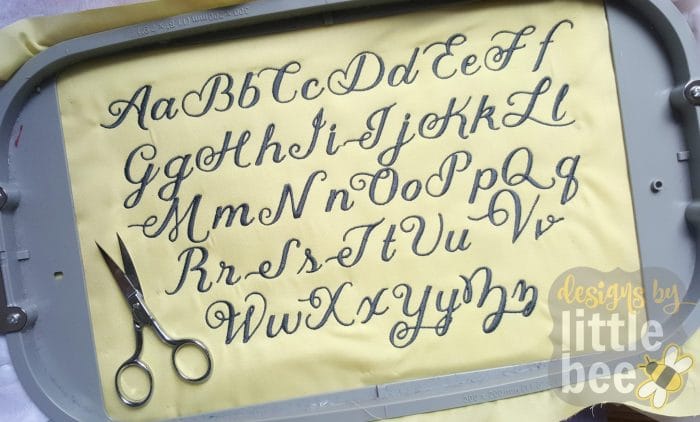 AaBbCcDdEeFf
GgHhIiJjKkLl
MmNnOoPpQq
RrSsTtUuVv
WwXxYyZz
designs by
little
bee